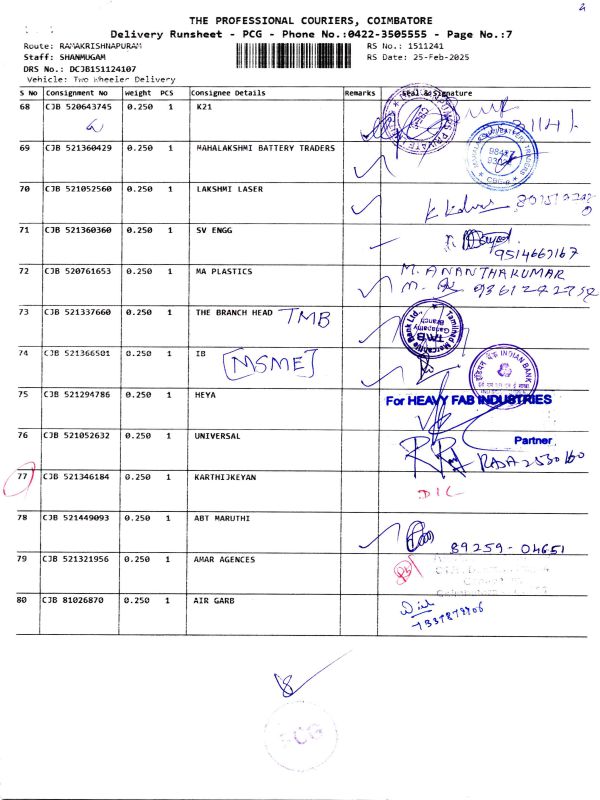 THE PROFESSIONAL COURIERS, COIMBATORE
Delivery Runsheet - PCG - Phone No.:0422-3505555 - Page No.:7
Route: RAMAKRISHNAPURAM RS No.: 1511241
Staff: SHANMUGAM RS Date: 25-Feb-2025
DRS No.: DCJB151124107
Vehicle: Two Wheeler Delivery
S No Consignment No Weight PCS Consignee Details Remarks Seal & Signature
68 CJB 520643745 0.250 1 K21
69 CJB 521360429 0.250 1 MAHALAKSHMI BATTERY TRADERS
70 CJB 521052560 0.250 1 LAKSHMI LASER
71 CJB 521360360 0.250 1 SV ENGG
9514667167
72 CJB 520761653 0.250 1 MA PLASTICS M. ANANTHAKUMAR
73 CJB 521337660 0.250 1 THE BRANCH HEAD TMB
Tamilnad Mercantile Bank Ltd.,
TMB
Ganapathy
Branch
74 CJB 521366501 0.250 1 IB [MSME]
INDIAN BANK
75 CJB 521294786 0.250 1 HEYA For HEAVY FAB INDUSTRIES
76 CJB 521052632 0.250 1 UNIVERSAL Partner
77 CJB 521346184 0.250 1 KARTHIJKEYAN DIL
78 CJB 521449093 0.250 1 ABT MARUTHI
89259-04651
79 CJB 521321956 0.250 1 AMAR AGENCES
80 CJB 81026870 0.250 1 AIR GARB
PCG